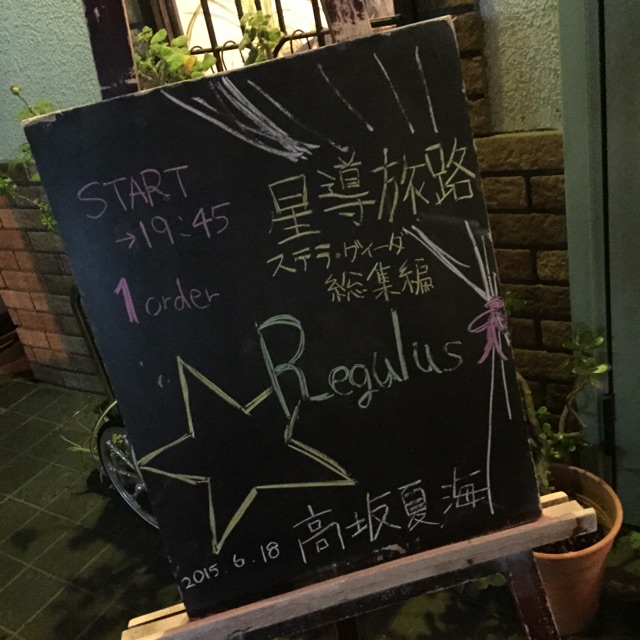 START
→19:45
1 order
星導旅路
ステラ・ヴィーダ
総集編
Regulus
高坂夏海
2015.6.18